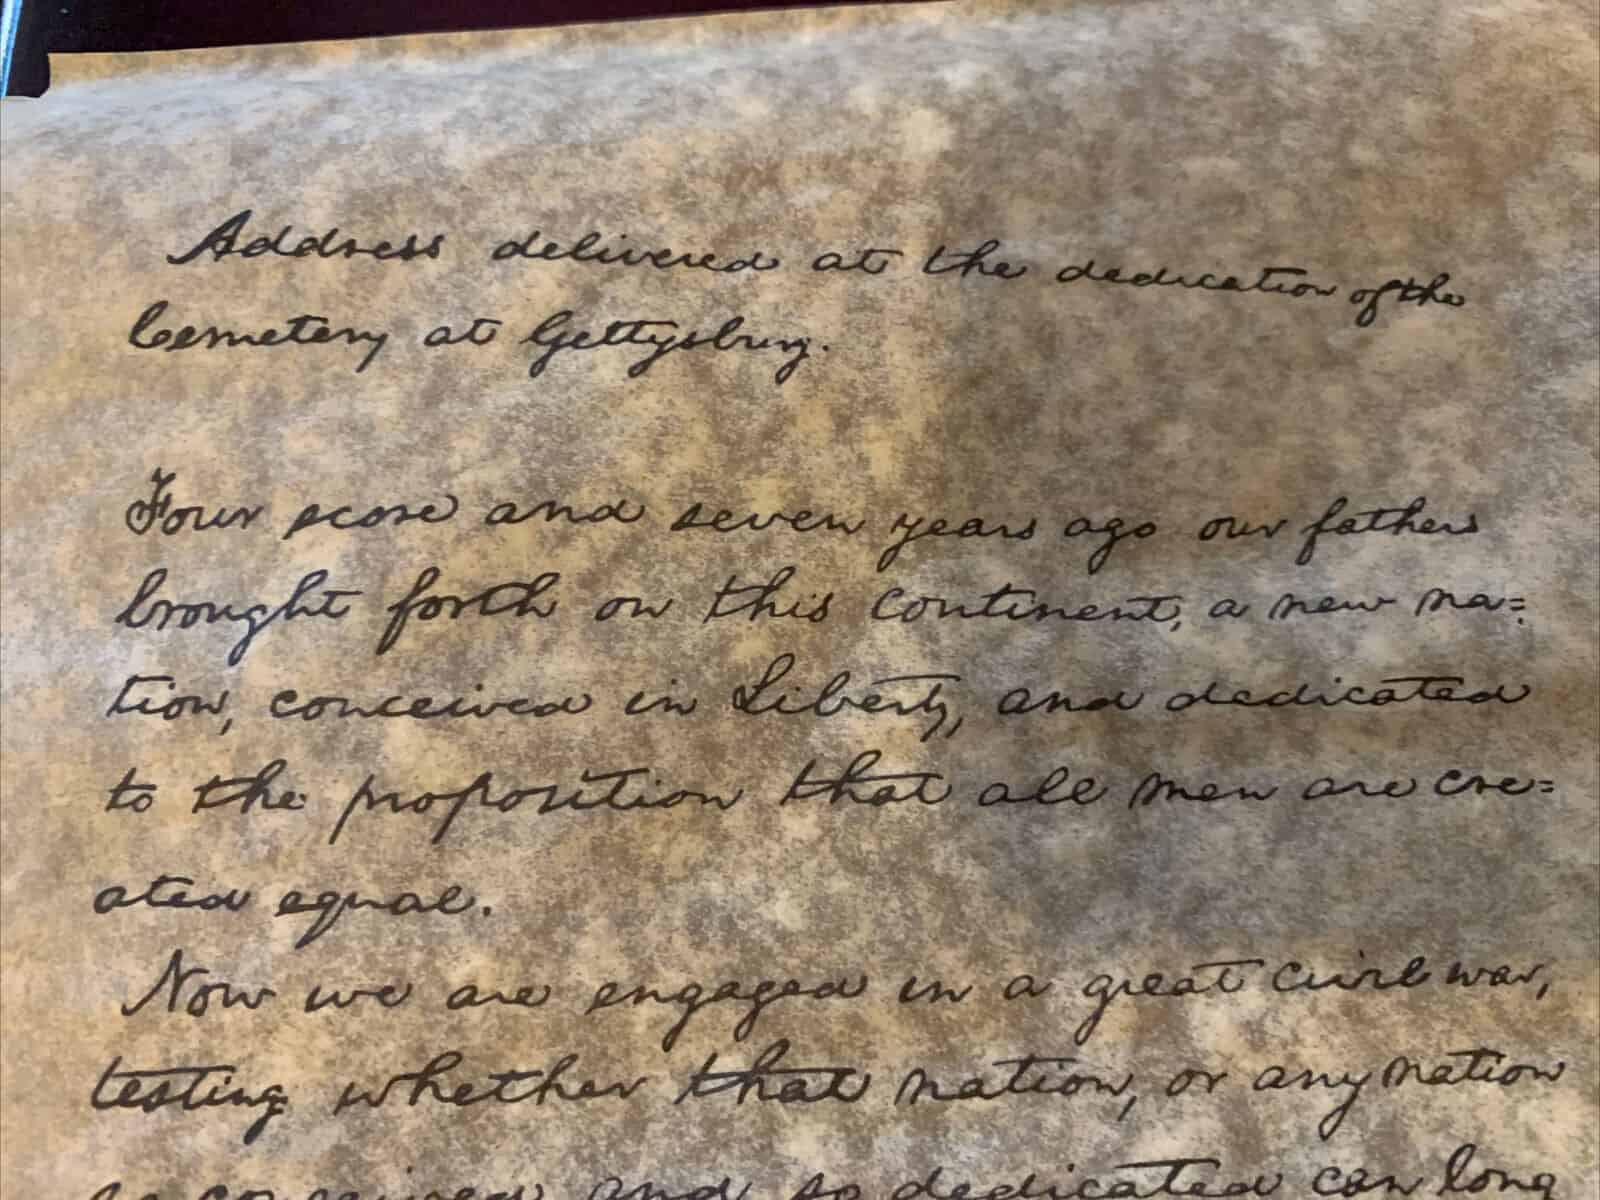 Address delivered at the dedication of the
Cemetery at Gettysburg.
Four score and seven years ago our fathers
brought forth on this continent, a new na=
tion, conceived in Liberty, and dedicated
to the proposition that all men are cre=
ated equal.
Now we are engaged in a great civil war,
testing whether that nation, or any nation
so conceived and so dedicated can long